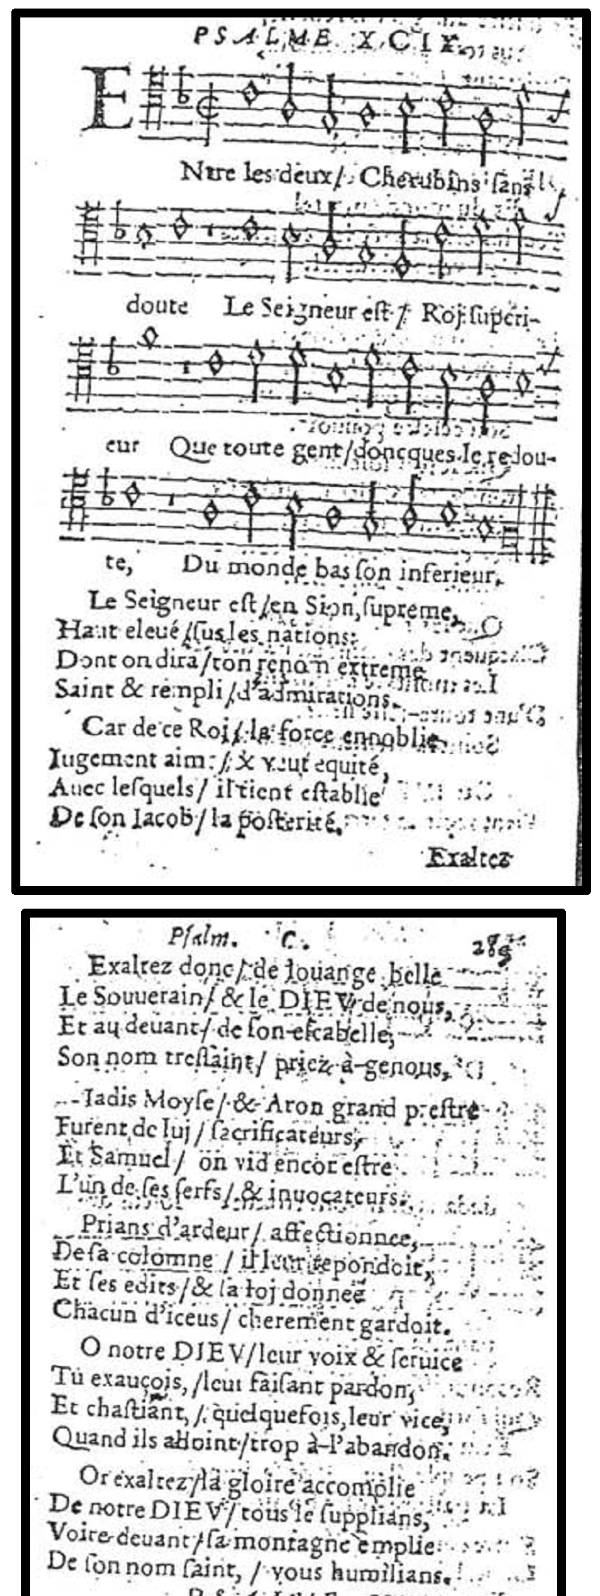 PSALME XCIX.
ENtre les deux/ Cherubins sans
doute Le Seigneur est / Roj superi-
eur Que toute gent/doncques le redou-
te, Du monde bas son inferieur.
Le Seigneur est/en Sion supreme,
Haut eleué/sus les nations:
Dont on dira/ton renom extreme
Saint & rempli/d'admirations.
Car de ce Roj/la force ennoblie
Iugement aim:/& veut equité,
Auec lesquels/ il tient establie
De son Iacob/ la posterité.
Exaltez
Psalm. C. 289
Exaltez donc/de louange belle
Le Souuerain/ & le DIEV de nous,
Et au deuant/ de son escabelle,
Son nom tressaint/ priez à-genous,
Iadis Moyse/ & Aron grand prestre
Furent de luj/ sacrificateurs,
Et Samuel/ on vid encor estre
L'un de ses serfs/ & inuocateurs.
Prians d'ardeur/ affectionnee,
De sa colomne / il leur repondoit,
Et ses edits/& sa loj donnee
Chacun d'iceus/ cherement gardoit.
O notre DIEV/leur voix & seruice
Tu exauçois,/leur faisant pardon,
Et chastiant,/ quelquefois, leur vice,
Quand ils alloint/trop à-l'abandon.
Or exaltez/la gloire accomplie
De notre DIEV/ tous le supplians,
Voire deuant/sa montagne emplie
De son nom saint, / vous humilians.